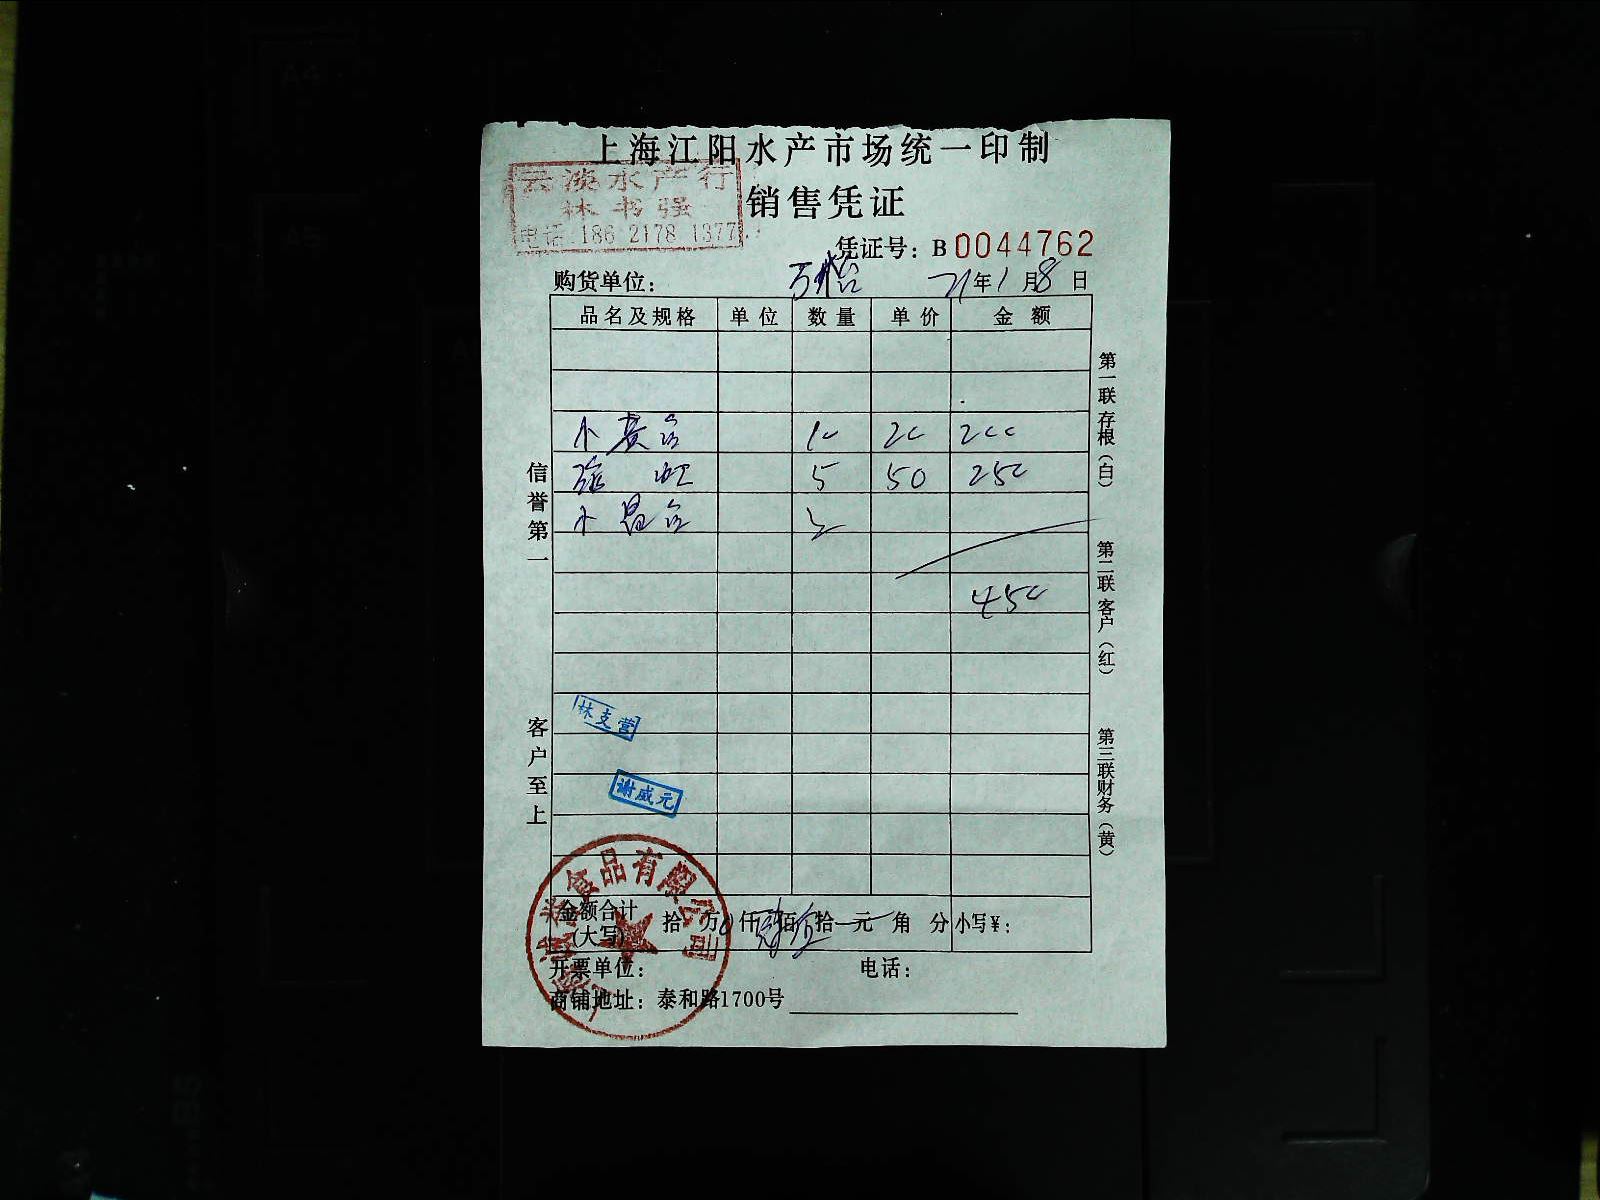 上海江阳水产市场统一印制
云淡水产行
林书强
电话:186 2178 1377
销售凭证
凭证号: B 0044762
购货单位: 21年1月8日
品名及规格 单位 数量 单价 金额
小黄 10 20 200
5 50 250
小 3
450
信誉第一
客户至上
第一联存根(白)
第二联客户(红)
第三联财务(黄)
林支营
谢威元
食品有限公司
金额合计(大写) 拾 万 仟 肆 佰 伍 拾 元 角 分 小写¥:
开票单位: 电话:
商铺地址: 泰和路1700号